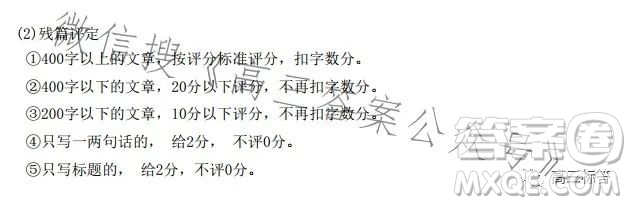 (2)残篇评定
①400字以上的文章，按评分标准评分，扣字数分。
②400字以下的文章，20分以下评分，不再扣字数分。
③200字以下的文章，10分以下评分，不再扣字数分。
④只写一两句话的， 给2分， 不评0分。
⑤只写标题的， 给2分，不评0分。
微信搜《高三答案公众号》
答案圈
MXQE.COM
高三标答